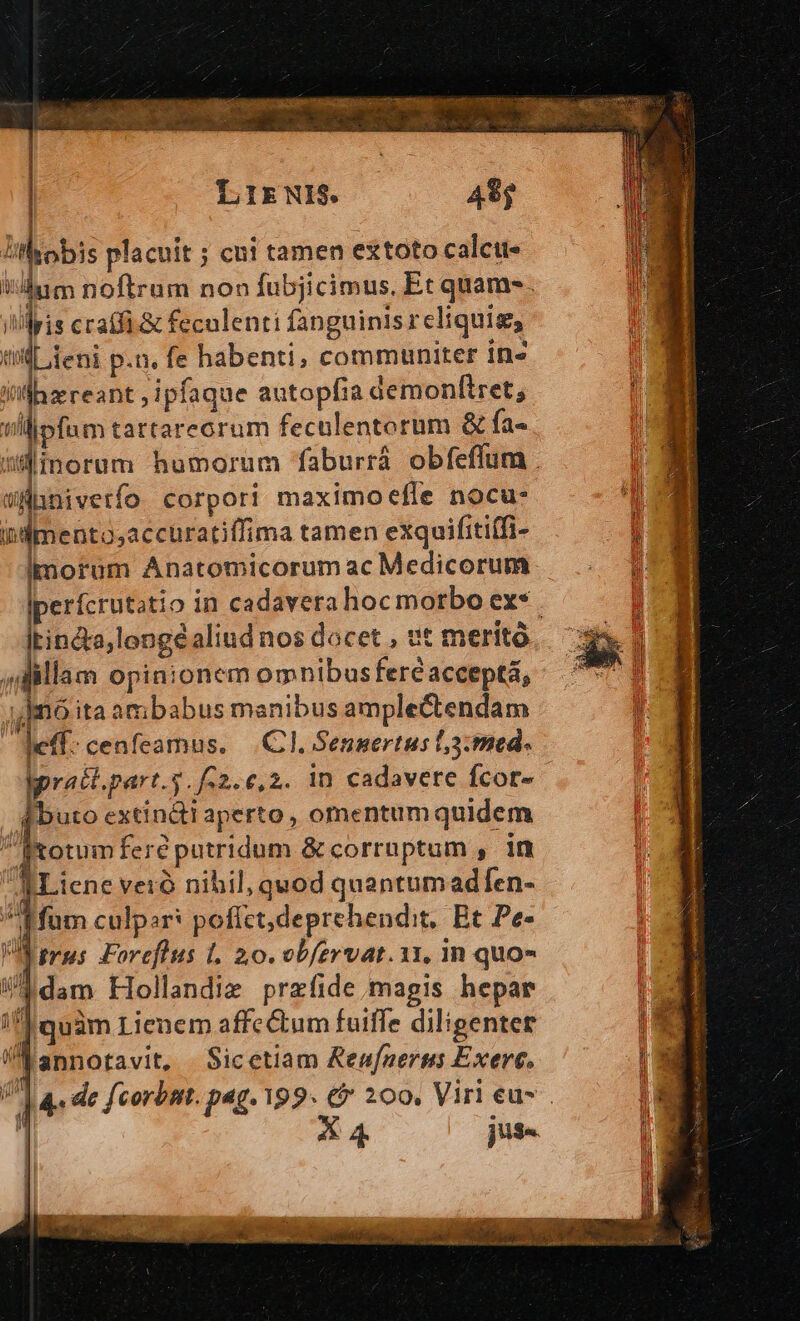 LIENIS. 485
nobis placuit ; cui tamen extoto calcu-
lum noſtrum non ſubjicimus. Et quam-
vis craſſi & feculenti ſanguinis reliquiæ,
Lieni p.n. ſe habenti, communiter in-
hæreant , ipſaque autopſia demonſtret,
ipſum tartareorum feculentorum & ſa-
linorum humorum ſaburrâ obſeſſum
univerſo corpori maximo eſſe nocu-
mento, accuratiſſima tamen exquiſitiſſi-
morum Anatomicorum ac Medicorum
perſcrutatio in cadavera hoc morbo ex-
tincta, longè aliud nos docet , ut meritò
illam opinionem omnibus ferè acceptā,
imò ita ambabus manibus amplectendam
eſſ. cenſeamus. Cl. Sennertus l.3. med.
pract. part. 5. ſ. 2. c, 2. in cadavere ſcor-
buto extincti aperto , omentum quidem
totum ferè putridum & corruptum , in
Liene verò nihil, quod quantum ad ſen-
ſum culpari poſſet, deprehendit. Et Pe-
trus Foreſtus l. 20. obſervat. 11, in quo-
dam Hollandiæ præſide magis hepar
quàm Lienem affectum fuiſſe diligenter
annotavit. Sic etiam Reuſnerus Exerc.
4. de ſcorbut. pag. 199. & 200. Viri eu-
X 4 jus-